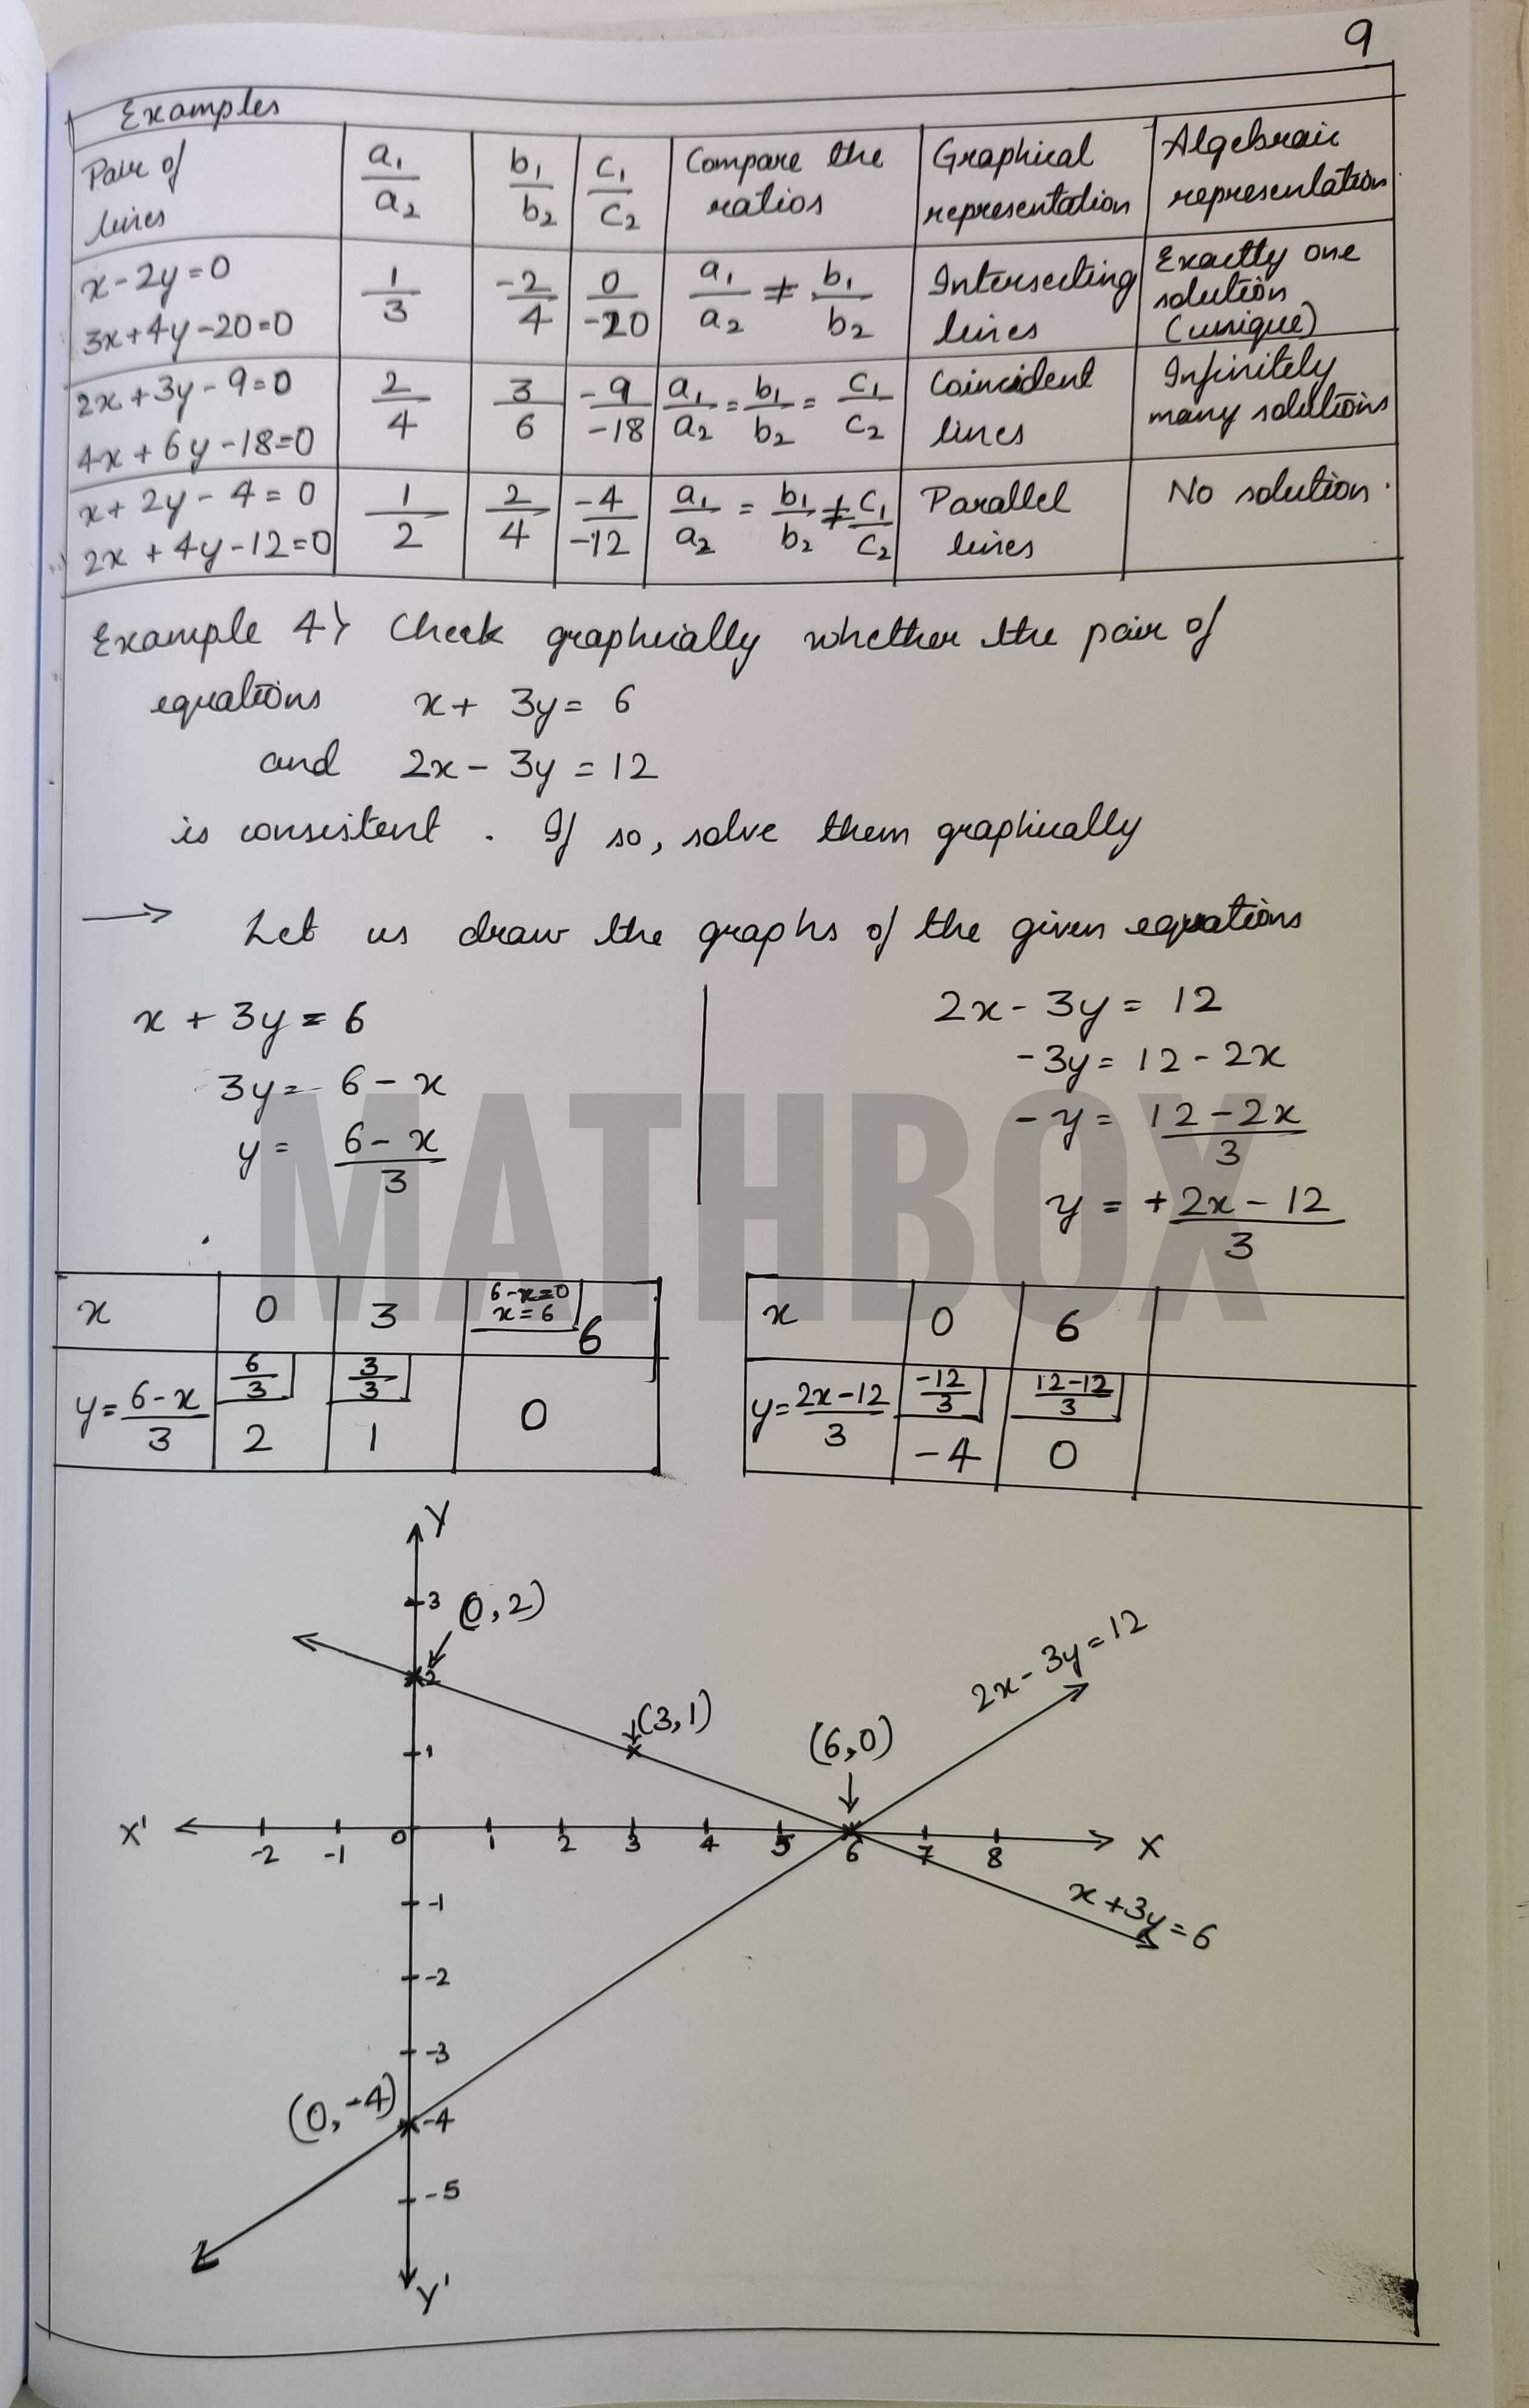 9
Examples
Pair of lines | a₁/a₂ | b₁/b₂ | c₁/c₂ | Compare the ratios | Graphical representation | Algebraic representation
x-2y=0 3x+4y-20=0 | 1/3 | -2/4 | 0/-20 | a₁/a₂ ≠ b₁/b₂ | Intersecting lines | Exactly one solution (unique)
2x+3y-9=0 4x+6y-18=0 | 2/4 | 3/6 | -9/-18 | a₁/a₂ = b₁/b₂ = c₁/c₂ | Coincident lines | Infinitely many solutions
x+2y-4=0 2x+4y-12=0 | 1/2 | 2/4 | -4/-12 | a₁/a₂ = b₁/b₂ ≠ c₁/c₂ | Parallel lines | No solution.
Example 4) Check graphically whether the pair of
equations x+3y=6
and 2x-3y=12
is consistent. If so, solve them graphically
→ Let us draw the graphs of the given equations
x+3y=6
3y=6-x
y=(6-x)/3
2x-3y=12
-3y=12-2x
-y=(12-2x)/3
y=+(2x-12)/3
MATHBOX
x | 0 | 3 | 6-x=0 x=6 6
y=(6-x)/3 | 6/3 2 | 3/3 1 | 0
x | 0 | 6
y=(2x-12)/3 | -12/3 -4 | (12-12)/3 0
Y
3
(0,2)
2
2x-3y=12
(3,1)
(6,0)
1
X' -2 -1 0 1 2 3 4 5 6 7 8 X
x+3y=6
-1
-2
-3
(0,-4)
-4
-5
Y'